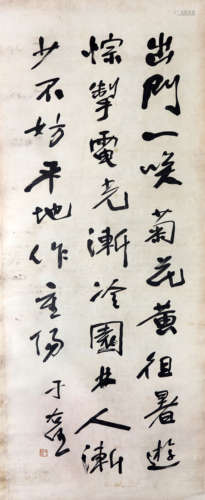 出門一笑菊花黃徂暑遊
悰掣電光漸冷園林人漸
少不妨平地作重陽
于右任